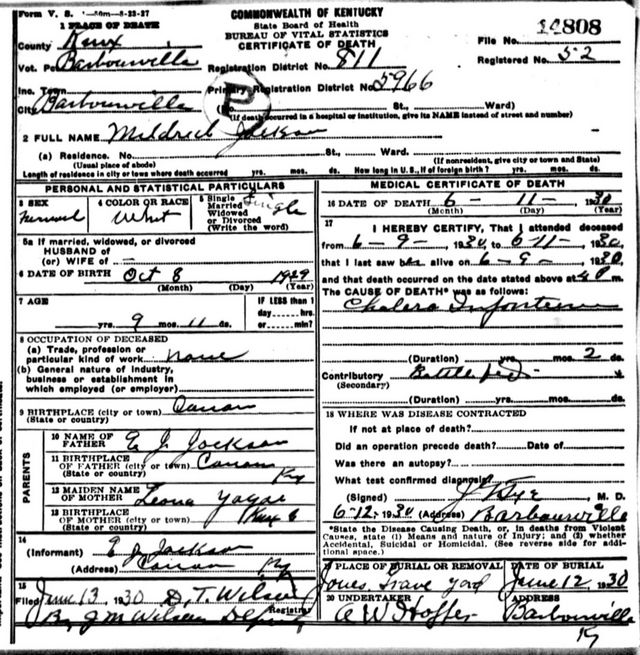 Form V. S. 1-50m-8-23-27
COMMONWEALTH OF KENTUCKY
State Board of Health
BUREAU OF VITAL STATISTICS
CERTIFICATE OF DEATH
1 PLACE OF DEATH
File No. 14808
County Knox
Registered No. 52
Vot. Pc Barbourville
Registration District No. 811
Inc. Town
Primary Registration District No. 5966
City Barbourville (No. St., Ward)
(If death occurred in a hospital or institution, give its NAME instead of street and number)
2 FULL NAME Mildred Jackson
(a) Residence. No. St., Ward.
(Usual place of abode) (If nonresident, give city or town and State)
Length of residence in city or town where death occurred yrs. mos. ds. How long in U. S., if of foreign birth? yrs. mos. ds.
PERSONAL AND STATISTICAL PARTICULARS
3 SEX
4 COLOR OR RACE
5 Single
Married
Widowed
or Divorced
(Write the word)
Single
Whit
5a If married, widowed, or divorced
HUSBAND OF
(or) WIFE OF —
6 DATE OF BIRTH Oct 8 1929
(Month) (Day) (Year)
7 AGE
IF LESS than 1
day hrs.
or min?
yrs. 9 mos. 11 ds.
8 OCCUPATION OF DECEASED
(a) Trade, profession or
particular kind of work none
(b) General nature of industry,
business or establishment in
which employed (or employer)
9 BIRTHPLACE (city or town) Cannon
(State or country)
PARENTS
10 NAME OF
FATHER E J Jackson
11 BIRTHPLACE
OF FATHER (city or town) Cannon
(State or country) Ky
12 MAIDEN NAME
OF MOTHER Leona
13 BIRTHPLACE
OF MOTHER (city or town) Knox C
(State or country)
14
(Informant) E J Jackson
(Address) Cannon Ky
15
Filed June 13, 1930 D. T. Wilson
Registrar
By J M Wilson Deputy
MEDICAL CERTIFICATE OF DEATH
16 DATE OF DEATH 6 - 11 - 1930
(Month) (Day) (Year)
17
I HEREBY CERTIFY, That I attended deceased
from 6-9-, 1930, to 6-11-, 1930,
that I last saw her alive on 6-9-, 1930,
and that death occurred on the date stated above at m.
The CAUSE OF DEATH* was as follows:
Cholera Infantum
(Duration) yrs. mos. 2 ds.
Contributory Bottle fed
(Secondary)
(Duration) yrs. mos. ds.
18 WHERE WAS DISEASE CONTRACTED
If not at place of death?
Did an operation precede death? Date of
Was there an autopsy?
What test confirmed diagnosis?
(Signed) M. D.
6-12, 1930 (Address) Barbourville
*State the Disease Causing Death, or, in deaths from Violent
Causes, state (1) Means and nature of Injury; and (2) whether
Accidental, Suicidal or Homicidal. (See reverse side for addi-
tional space.)
PLACE OF BURIAL OR REMOVAL DATE OF BURIAL
Jones Grave yard June 12 1930
20 UNDERTAKER ADDRESS
A W Hopper Barbourville
Ky